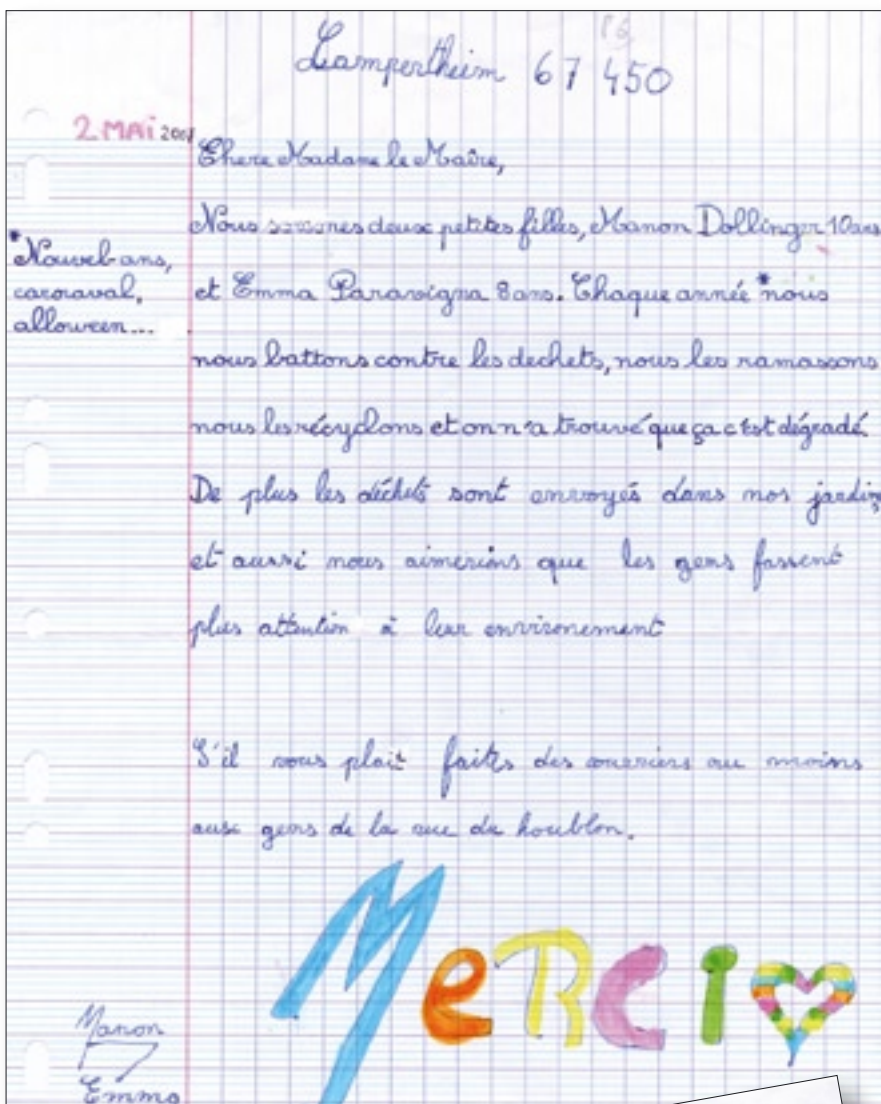 Lampertheim 67 450
2 MAi 200
Chere Madame le Maîre,
Nous sommes deux petites filles, Manon Dollinger 10ans
*Nouvel-ans,
carnaval,
alloween...
et Emma Paravigna 8ans. Chaque année *nous
nous battons contre les dechets, nous les ramassons
nous les récyclons et on n'a trouvé que ça c'est dégradé.
De plus les déchets sont envoyés dans nos jardins
et aussi nous aimerions que les gens fassent
plus attention à leur environement
S'il vous plait faits des courriers au moins
aux gens de la rue du houblon.
MeRCI
Manon
Emma